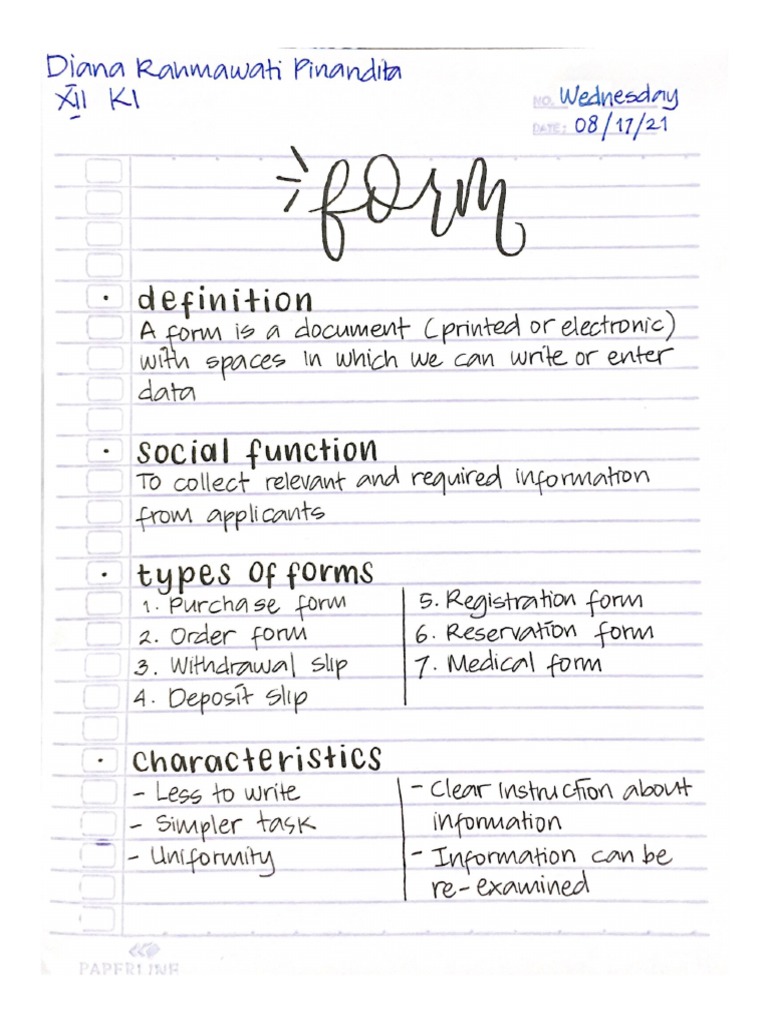 Diana Rahmawati Pinandita
XII K1
NO. Wednesday
DATE: 08/17/21
form
• definition
A form is a document (printed or electronic)
with spaces in which we can write or enter
data
• social function
To collect relevant and required information
from applicants
• types of forms
1. Purchase form
2. Order form
3. Withdrawal slip
4. Deposit slip
5. Registration form
6. Reservation form
7. Medical form
• characteristics
- Less to write
- Simpler task
- Uniformity
- Clear instruction about
information
- Information can be
re-examined
PAPERLINE